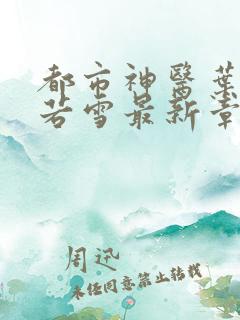 都市神醫葉
若雪最新章
周迅
未经同意禁止转载